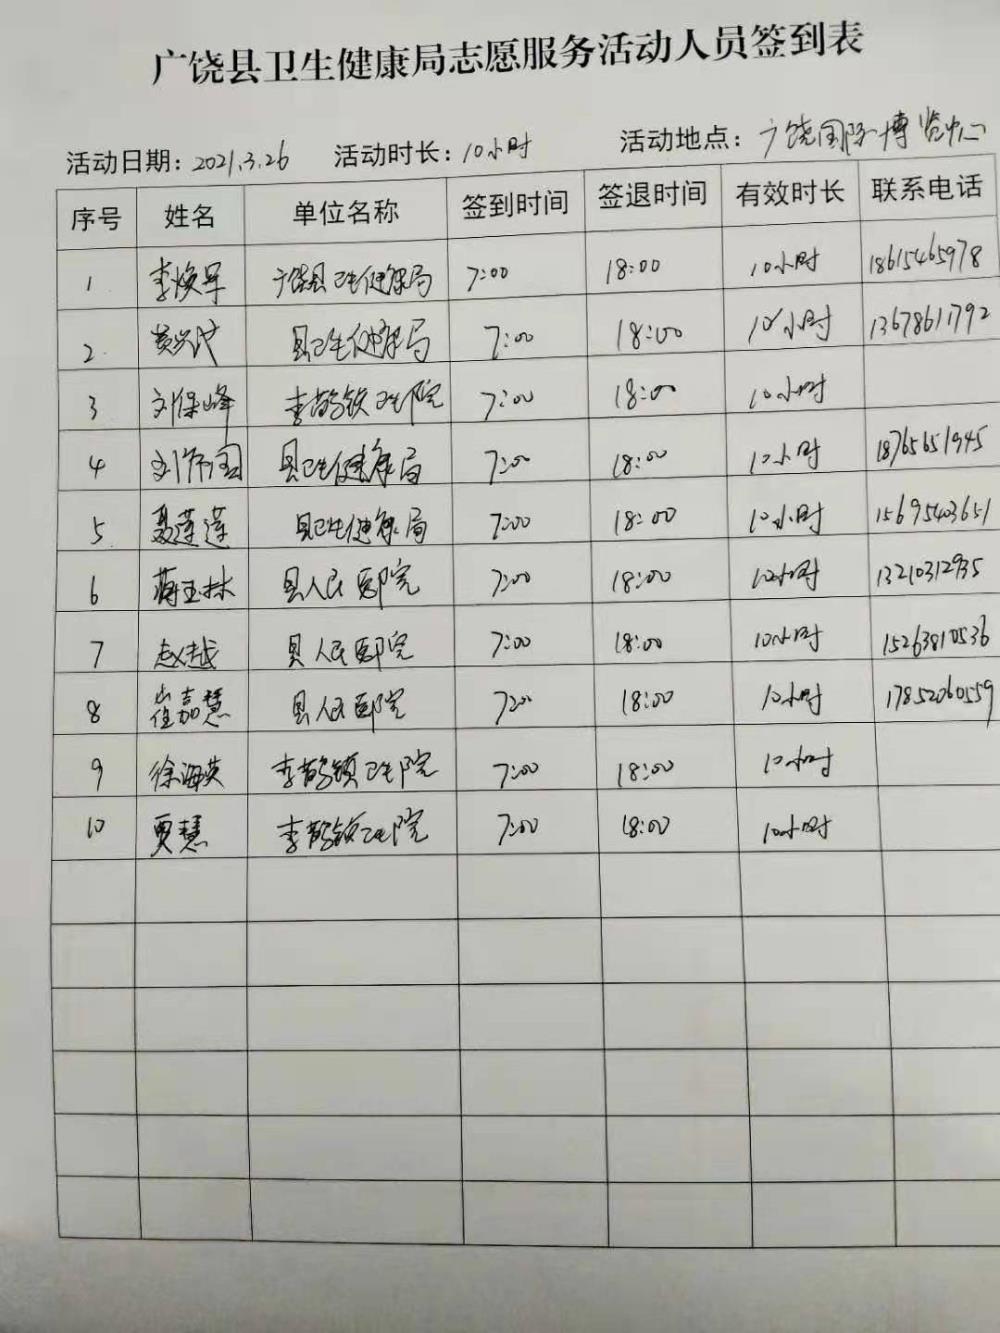 广饶县卫生健康局志愿服务活动人员签到表
活动日期：2021.3.26 活动时长：10小时 活动地点：广饶国际博览中心
序号 姓名 单位名称 签到时间 签退时间 有效时长 联系电话
1 李焕军 广饶县卫生健康局 7:00 18:00 10小时 18615465978
2. 黄兴 县卫生健康局 7:00 18:00 10小时 13678611792
3 刘保峰 李鹊镇卫生院 7:00 18:00 10小时
4 刘 国 县卫生健康局 7:00 18:00 10小时 18765651945
5 聂莲莲 县卫生健康局 7:00 18:00 10小时 15695403651
6 蒋玉林 县人民医院 7:00 18:00 10小时 13210312935
7 赵越 县人民医院 7:00 18:00 10小时 15263810536
8 崔嘉慧 县人民医院 7:00 18:00 10小时 17852060559
9 徐海英 李鹊镇卫生院 7:00 18:00 10小时
10 贾慧 李鹊镇卫生院 7:00 18:00 10小时